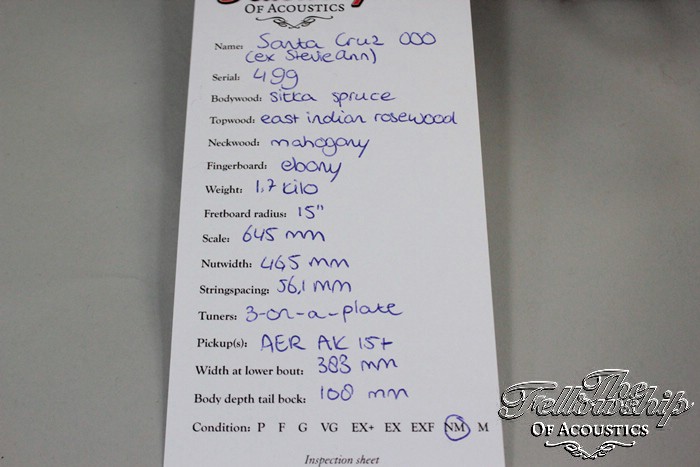 OF ACOUSTICS
Name: Santa Cruz 000
(ex Stevie Ann)
Serial: 499
Bodywood: sitka spruce
Topwood: east indian rosewood
Neckwood: mahogony
Fingerboard: ebony
Weight: 1,7 kilo
Fretboard radius: 15"
Scale: 645 mm
Nutwidth: 46,5 mm
Stringspacing: 56,1 mm
Tuners: 3-on-a-plate
Pickup(s): AER AK 15+
Width at lower bout: 383 mm
Body depth tail bock: 108 mm
Condition: P F G VG EX+ EX EXF NM M
Inspection sheet
The
Fellowship
OF ACOUSTICS